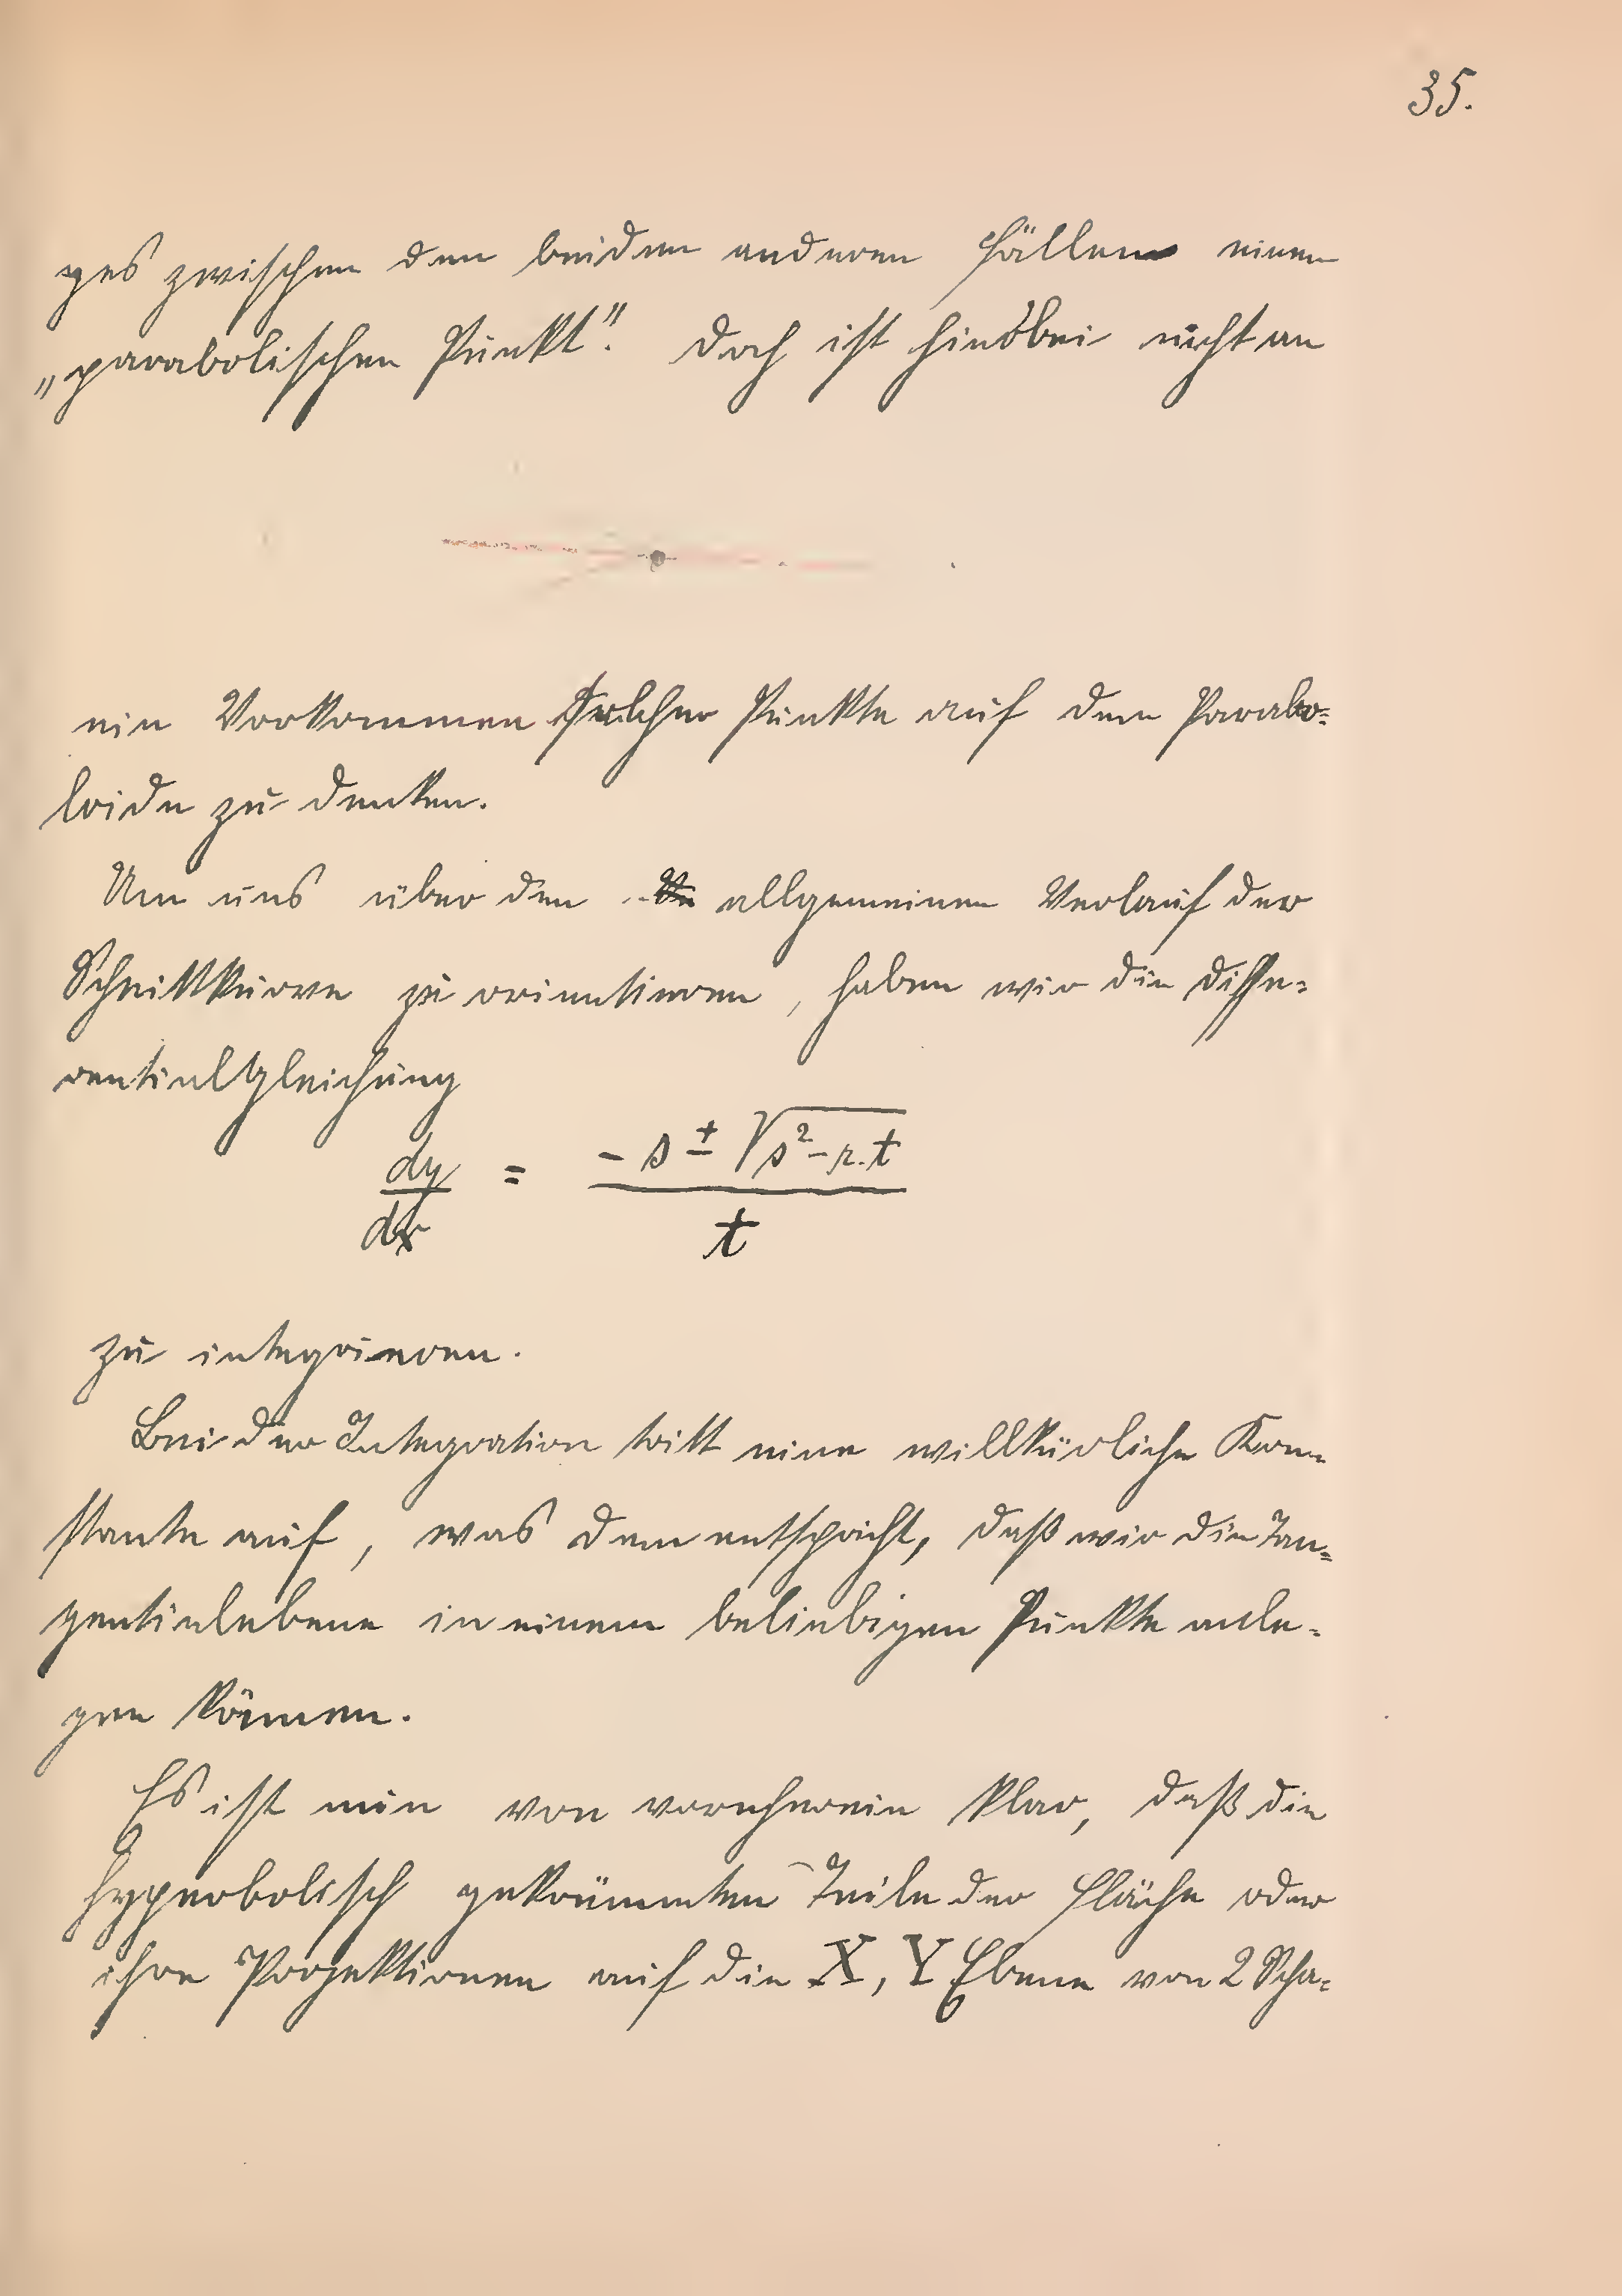 35.
ges zwischen den beiden anderen Fällen einen
„parabolischen Punkt". Doch ist hierbei nicht an
ein Vorkommen solcher Punkte auf dem Parabo-
loide zu denken.
Um uns über den allgemeinen Verlauf der
Schnittkurve zu orientieren, haben wir die Diffe-
rentialgleichung
dy/dx = (-s ± √(s²-r.t))/t
zu integrieren.
Bei der Integration tritt eine willkürliche Kon-
stante auf, was dem entspricht, daß wir die Tan-
gentialebene in einem beliebigen Punkte anle-
gen können.
Es ist nun von vorneherein klar, daß die
hyperbolisch gekrümmten Teile der Fläche oder
ihre Projektionen auf die X, Y Ebene von 2 Scha-